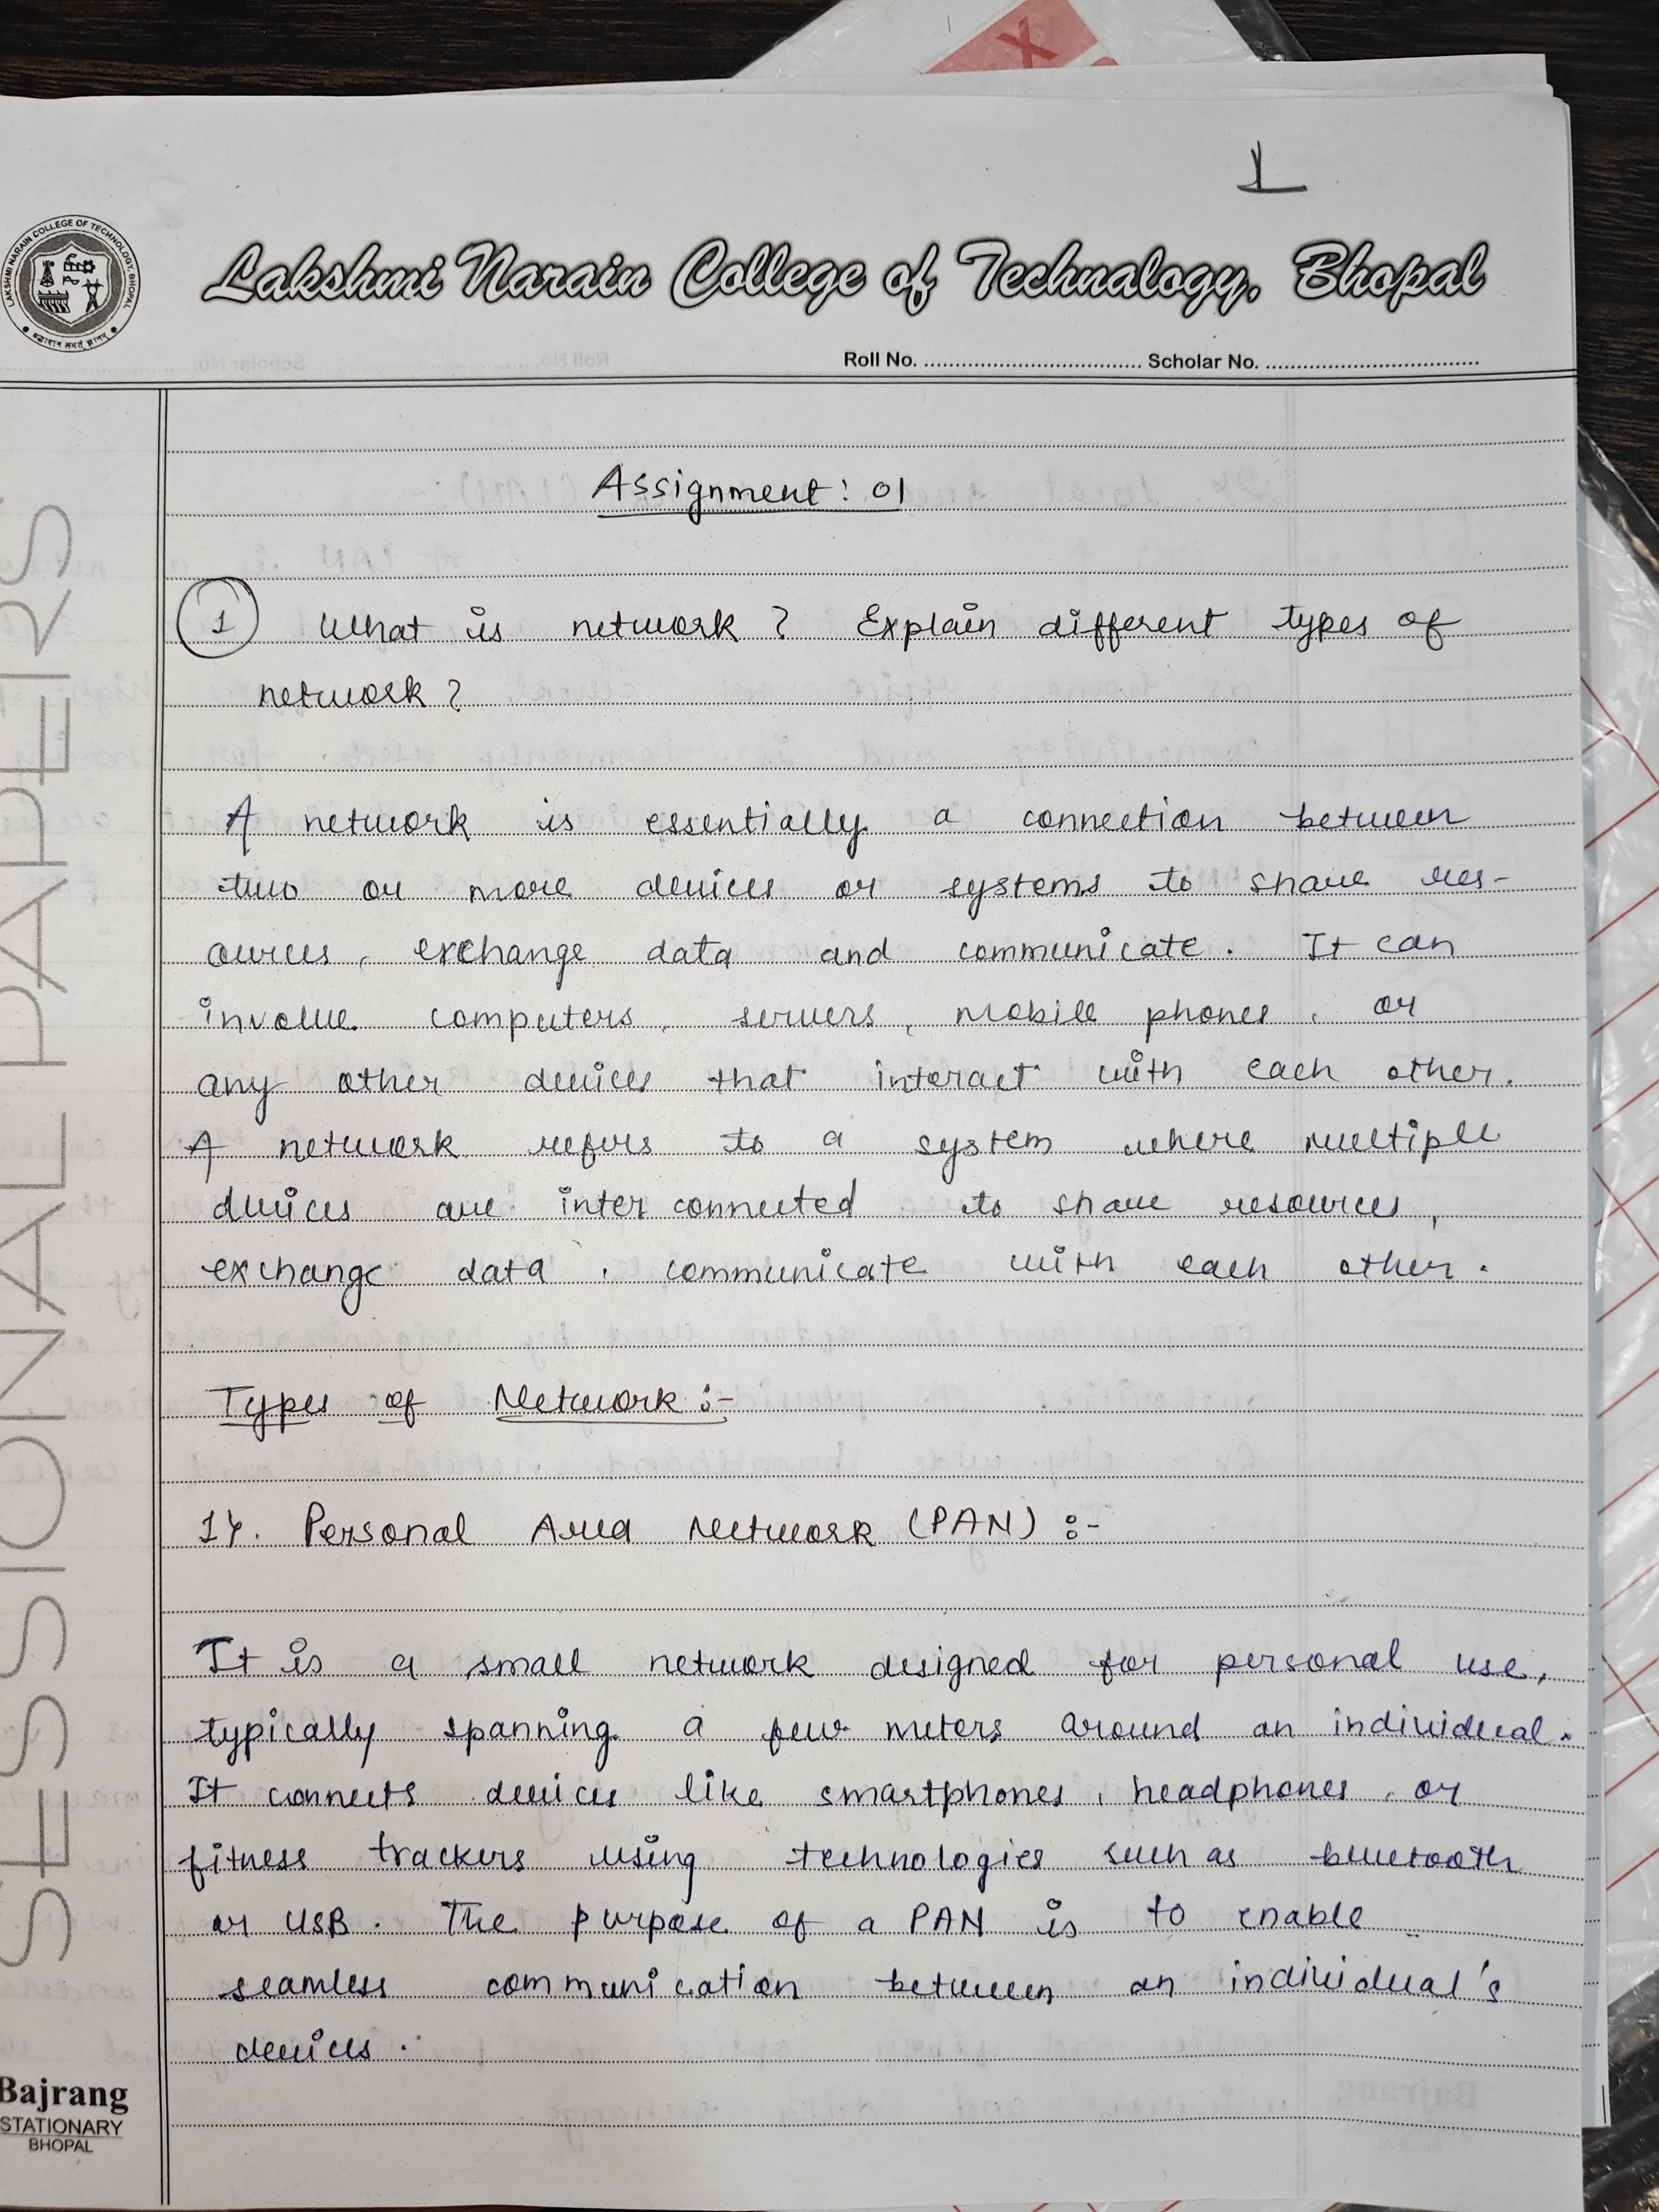 1
LAKSHMI NARAIN COLLEGE OF TECHNOLOGY, BHOPAL
Lakshmi Narain College of Technalogy, Bhopal
Roll No. ........................................ Scholar No. ........................................
Assignment : 01
1 What is network ? Explain different types of
network ?
A network is essentially a connection between
two or more devices or systems to share res-
ources, exchange data and communicate. It can
involve computers, servers, mobile phones, or
any other devices that interact with each other.
A network refers to a system where multiple
devices are inter connected to share resources,
exchange data, communicate with each other.
Types of Network :-
1. Personal Area Network (PAN) :-
It is a small network designed for personal use,
typically spanning a few meters around an individual.
It connects devices like smartphones, headphones, or
fitness trackers using technologies such as bluetooth
or USB. The purpose of a PAN is to enable
seamless communication between an individual's
devices.
SESSIONAL PAPERS
Bajrang
STATIONARY
BHOPAL